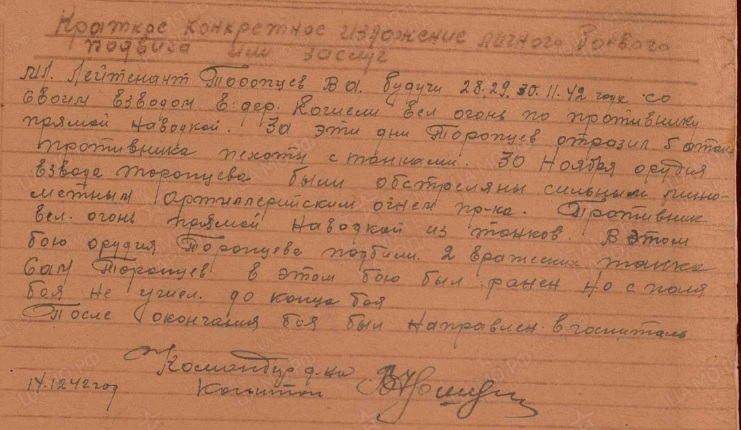 Краткое конкретное изложение личного боевого
подвига или заслуг
Мл. Лейтенант Торопцев В.А. будучи 28.29.30.11.42 года со
своим взводом в дер. вел огонь по противнику
прямой наводкой. За эти дни Торопцев отразил 5 атак
противника пехоты с танками. 30 Ноября орудия
взвода Торопцева были обстреляны сильным мино-
метным артиллерийским огнем пр-ка. Противник
вел огонь прямой наводкой из танков. В этом
бою орудия Торопцева подбили 2 вражеских танка
Сам Торопцев в этом бою был ранен но с поля
боя не ушел. до конца боя
После окончания боя был направлен в госпиталь
Командир д-на
14.12.42 год Капитан